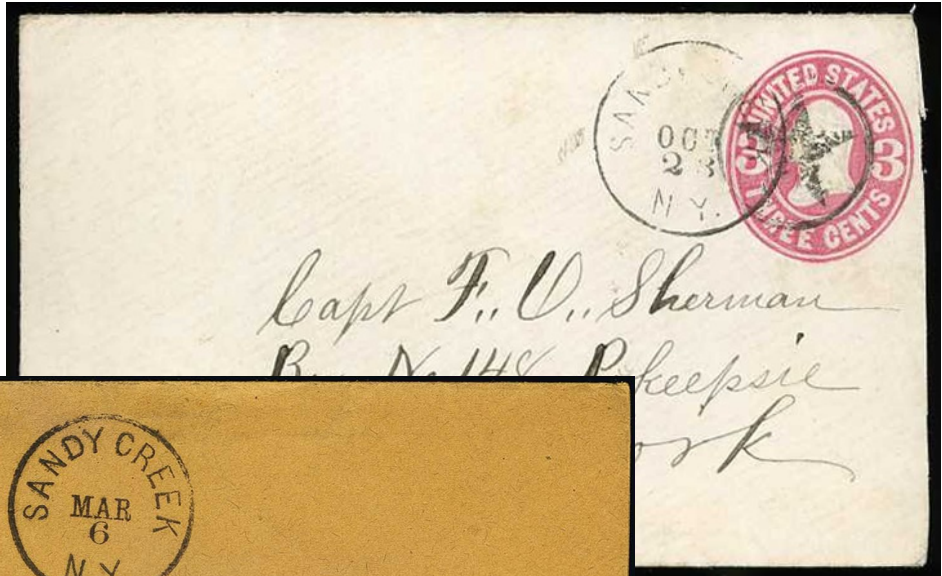 SANDY CREEK
OCT
23
N.Y.
UNITED STATES
3 3
THREE CENTS
Capt F. O. Sherman
No 148 Pokeepsie
SANDY CREEK
MAR
6
N.Y.